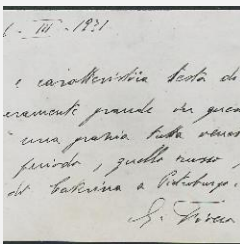 - III - 1921
e caratteristica testa di
eramente grande in ques
una grazia tutta venez
periodo, quello russo,
di Caterina a Pietroburgo.
G.